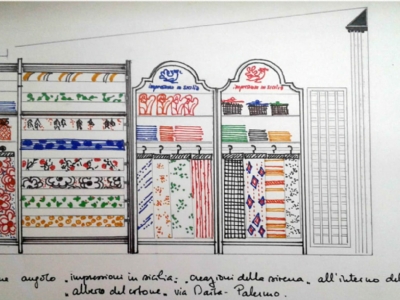 impressioni in sicilia
impressioni in sicilia
angolo - impressioni in sicilia - creazioni della sirena - all'interno del
albero del cotone - via Dante - Palermo -